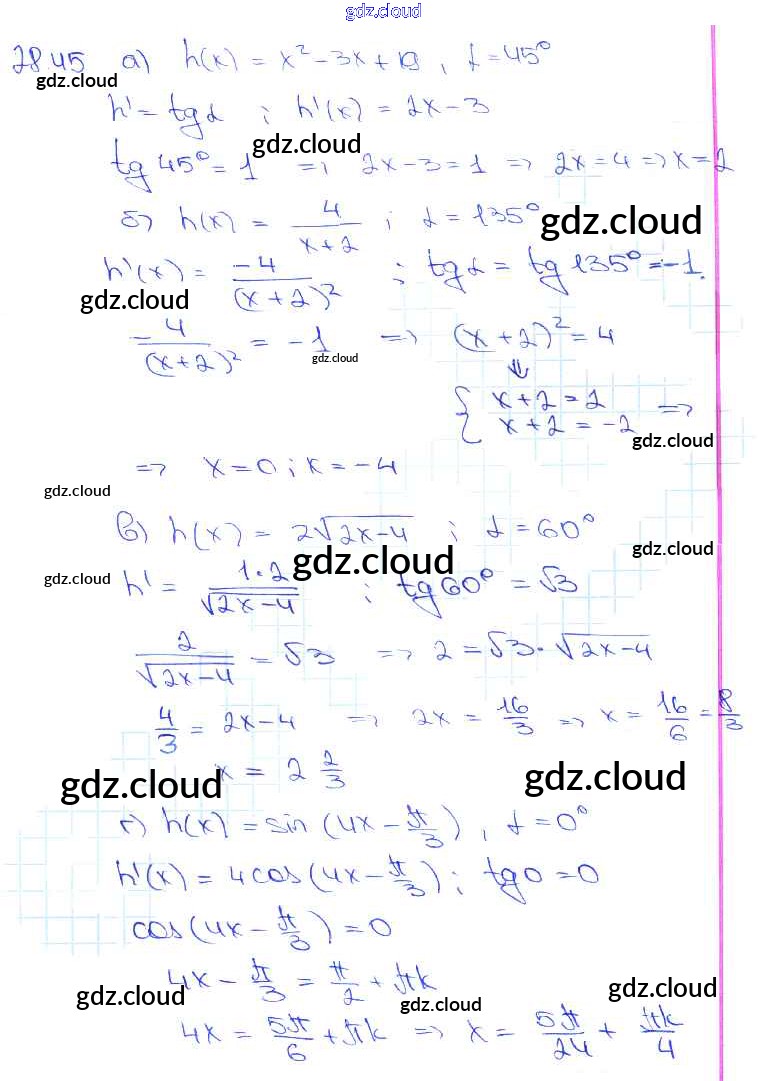 gdz.cloud
gdz.cloud
28.45 а) h(x) = x² − 3x + 19, α = 45°
gdz.cloud
h' = tg α ; h'(x) = 2x − 3
gdz.cloud
tg 45° = 1 => 2x − 3 = 1 => 2x = 4 => x = 2
б) h(x) = 4/(x+2) ; α = 135°
gdz.cloud
h'(x) = −4/(x+2)² ; tg α = tg 135° = −1.
gdz.cloud
−4/(x+2)² = −1 => (x+2)² = 4
gdz.cloud
⇓
{ x+2 = 2
x+2 = −2 =>
gdz.cloud
=> x = 0 ; x = −4
gdz.cloud
в) h(x) = 2√(2x−4) ; α = 60°
gdz.cloud
gdz.cloud
gdz.cloud
h' = 1·2/√(2x−4) ; tg 60° = √3
2/√(2x−4) = √3 => 2 = √3 · √(2x−4)
4/3 = 2x − 4 => 2x = 16/3 => x = 16/6 = 8/3
x = 2 2/3
gdz.cloud
gdz.cloud
г) h(x) = sin (4x − π/3), α = 0°
h'(x) = 4cos(4x − π/3) ; tg 0 = 0
cos(4x − π/3) = 0
4x − π/3 = π/2 + πk
gdz.cloud
gdz.cloud
gdz.cloud
4x = 5π/6 + πk => x = 5π/24 + πk/4